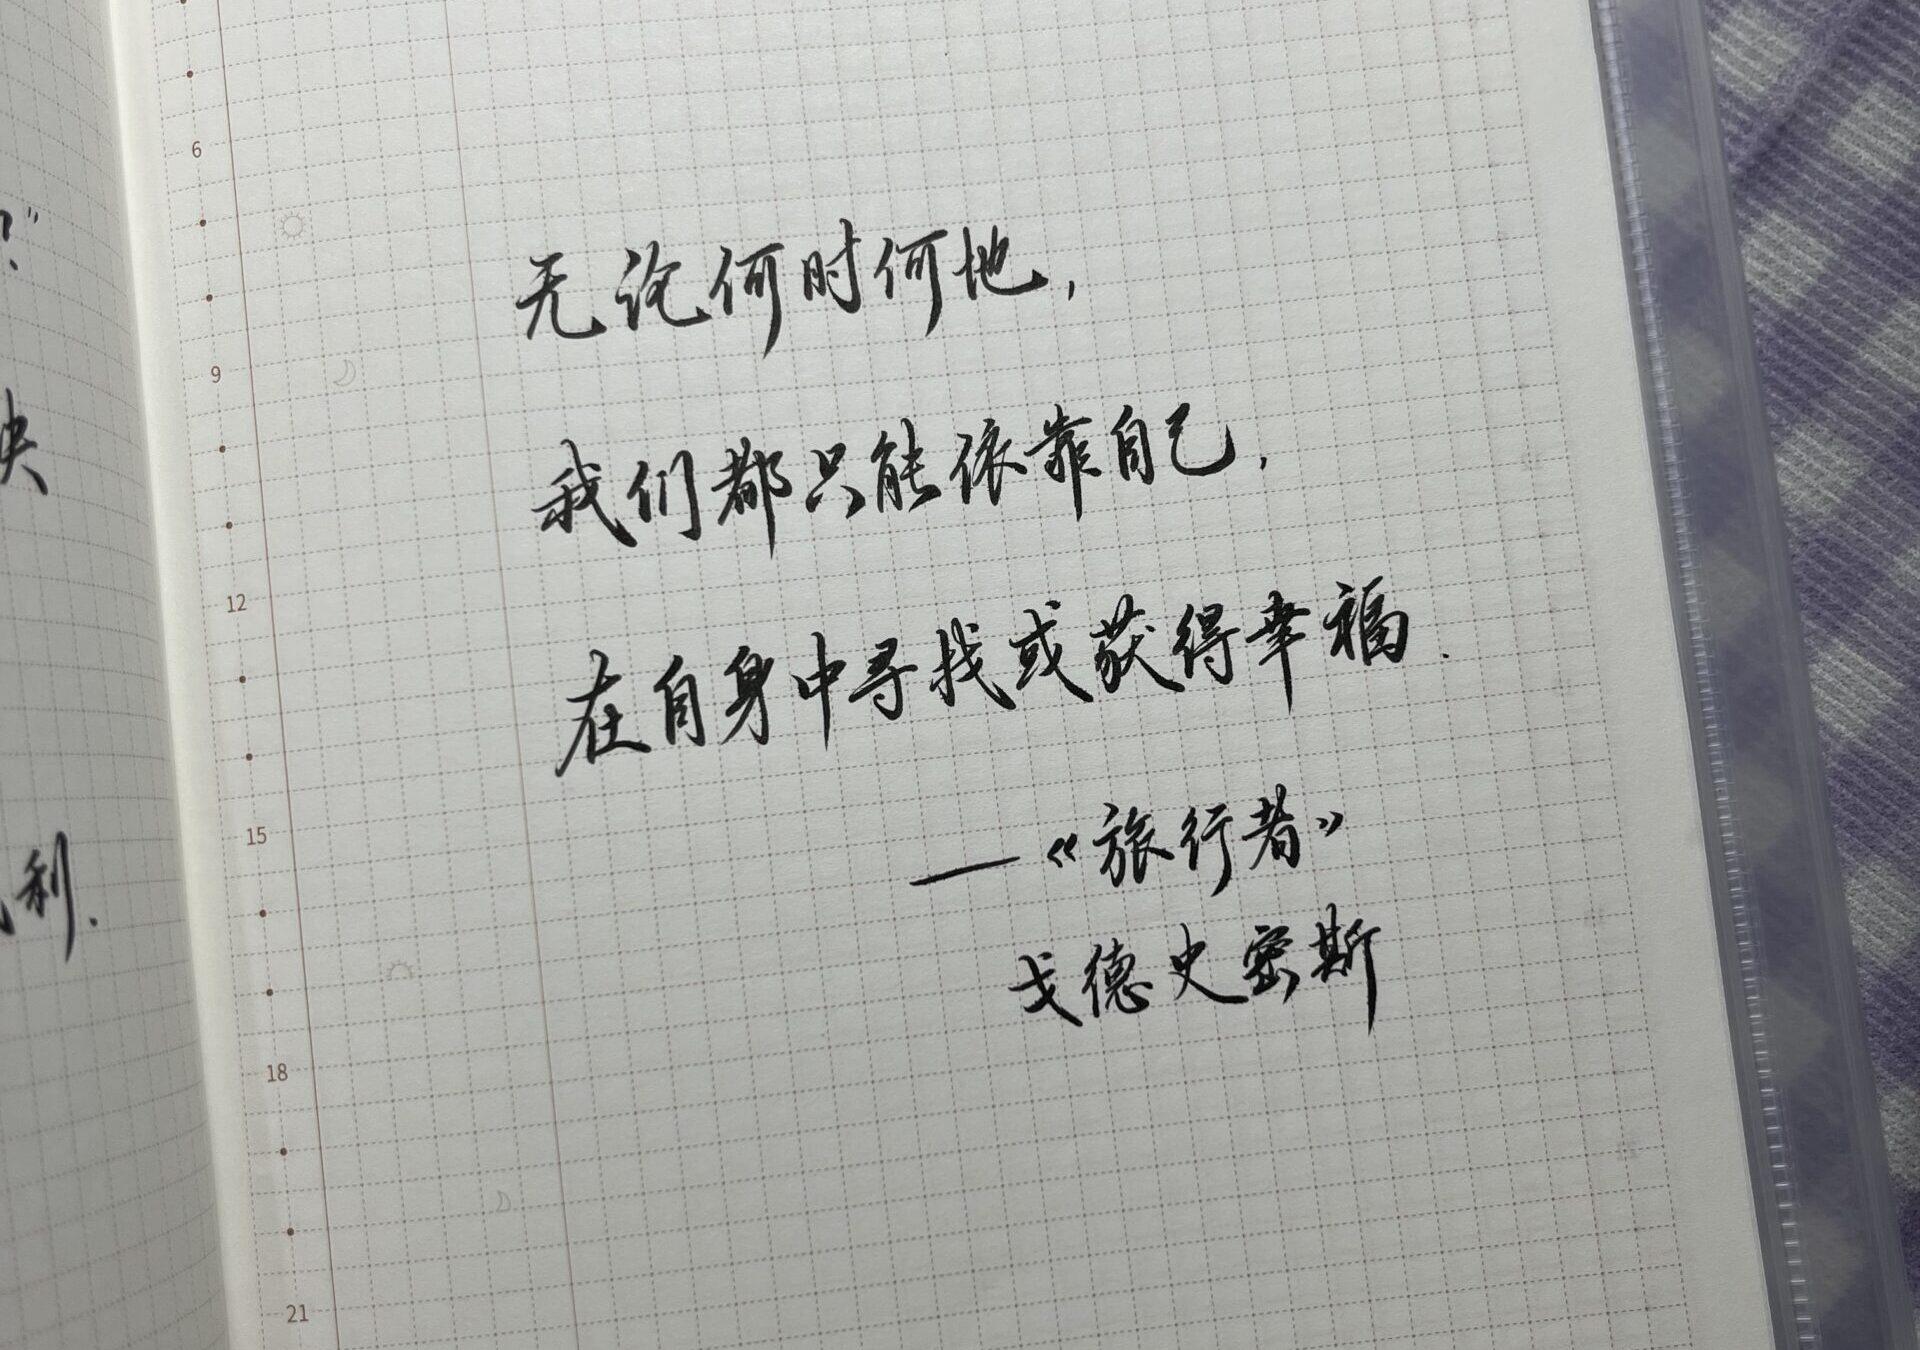 无论何时何地,
我们都只能依靠自己,
在自身中寻找或获得幸福.
—《旅行者》
戈德史密斯
6
9
12
15
18
21
?"
央
利.